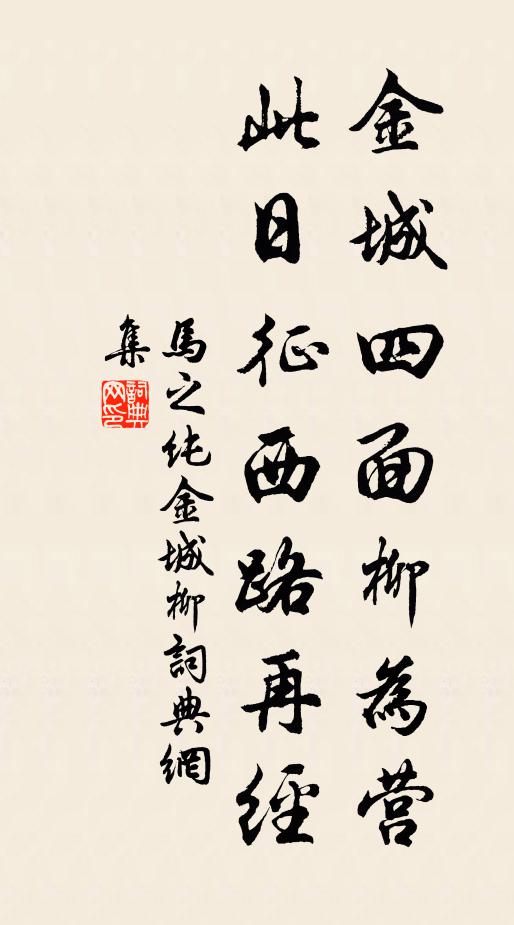 金城四面柳為营
此日征西路再經
馬之純金城柳詞典網
集
詞典
网印